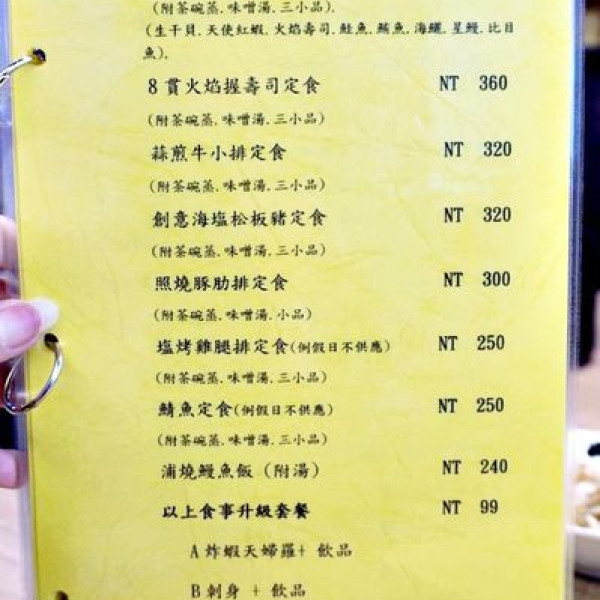 (附茶碗蒸.味噌湯.三小品).
(生干貝.天使紅蝦.火焰壽司.鮭魚.鮪魚.海鱺.星鰻.比目
魚).
8貫火焰握壽司定食 NT 360
(附茶碗蒸.味噌湯.三小品)
蒜煎牛小排定食 NT 320
(附茶碗蒸.味噌湯.三小品)
創意海塩松板豬定食 NT 320
(附茶碗蒸.味噌湯.三小品)
照燒豚肋排定食 NT 300
(附茶碗蒸.味噌湯.小品)
塩烤雞腿排定食(例假日不供應) NT 250
(附茶碗蒸.味噌湯.三小品)
鯖魚定食(例假日不供應) NT 250
(附茶碗蒸.味噌湯.三小品)
浦燒鰻魚飯(附湯) NT 240
以上食事升級套餐 NT 99
A炸蝦天婦羅+ 飲品
B刺身 + 飲品